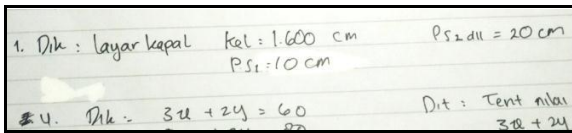 1. Dik : layar kapal kel : 1.600 cm PS2 dll = 20 cm
PS1 = 10 cm
4. Dik : 3x + 2y = 60 Dit : Tent nilai
3x + 2y